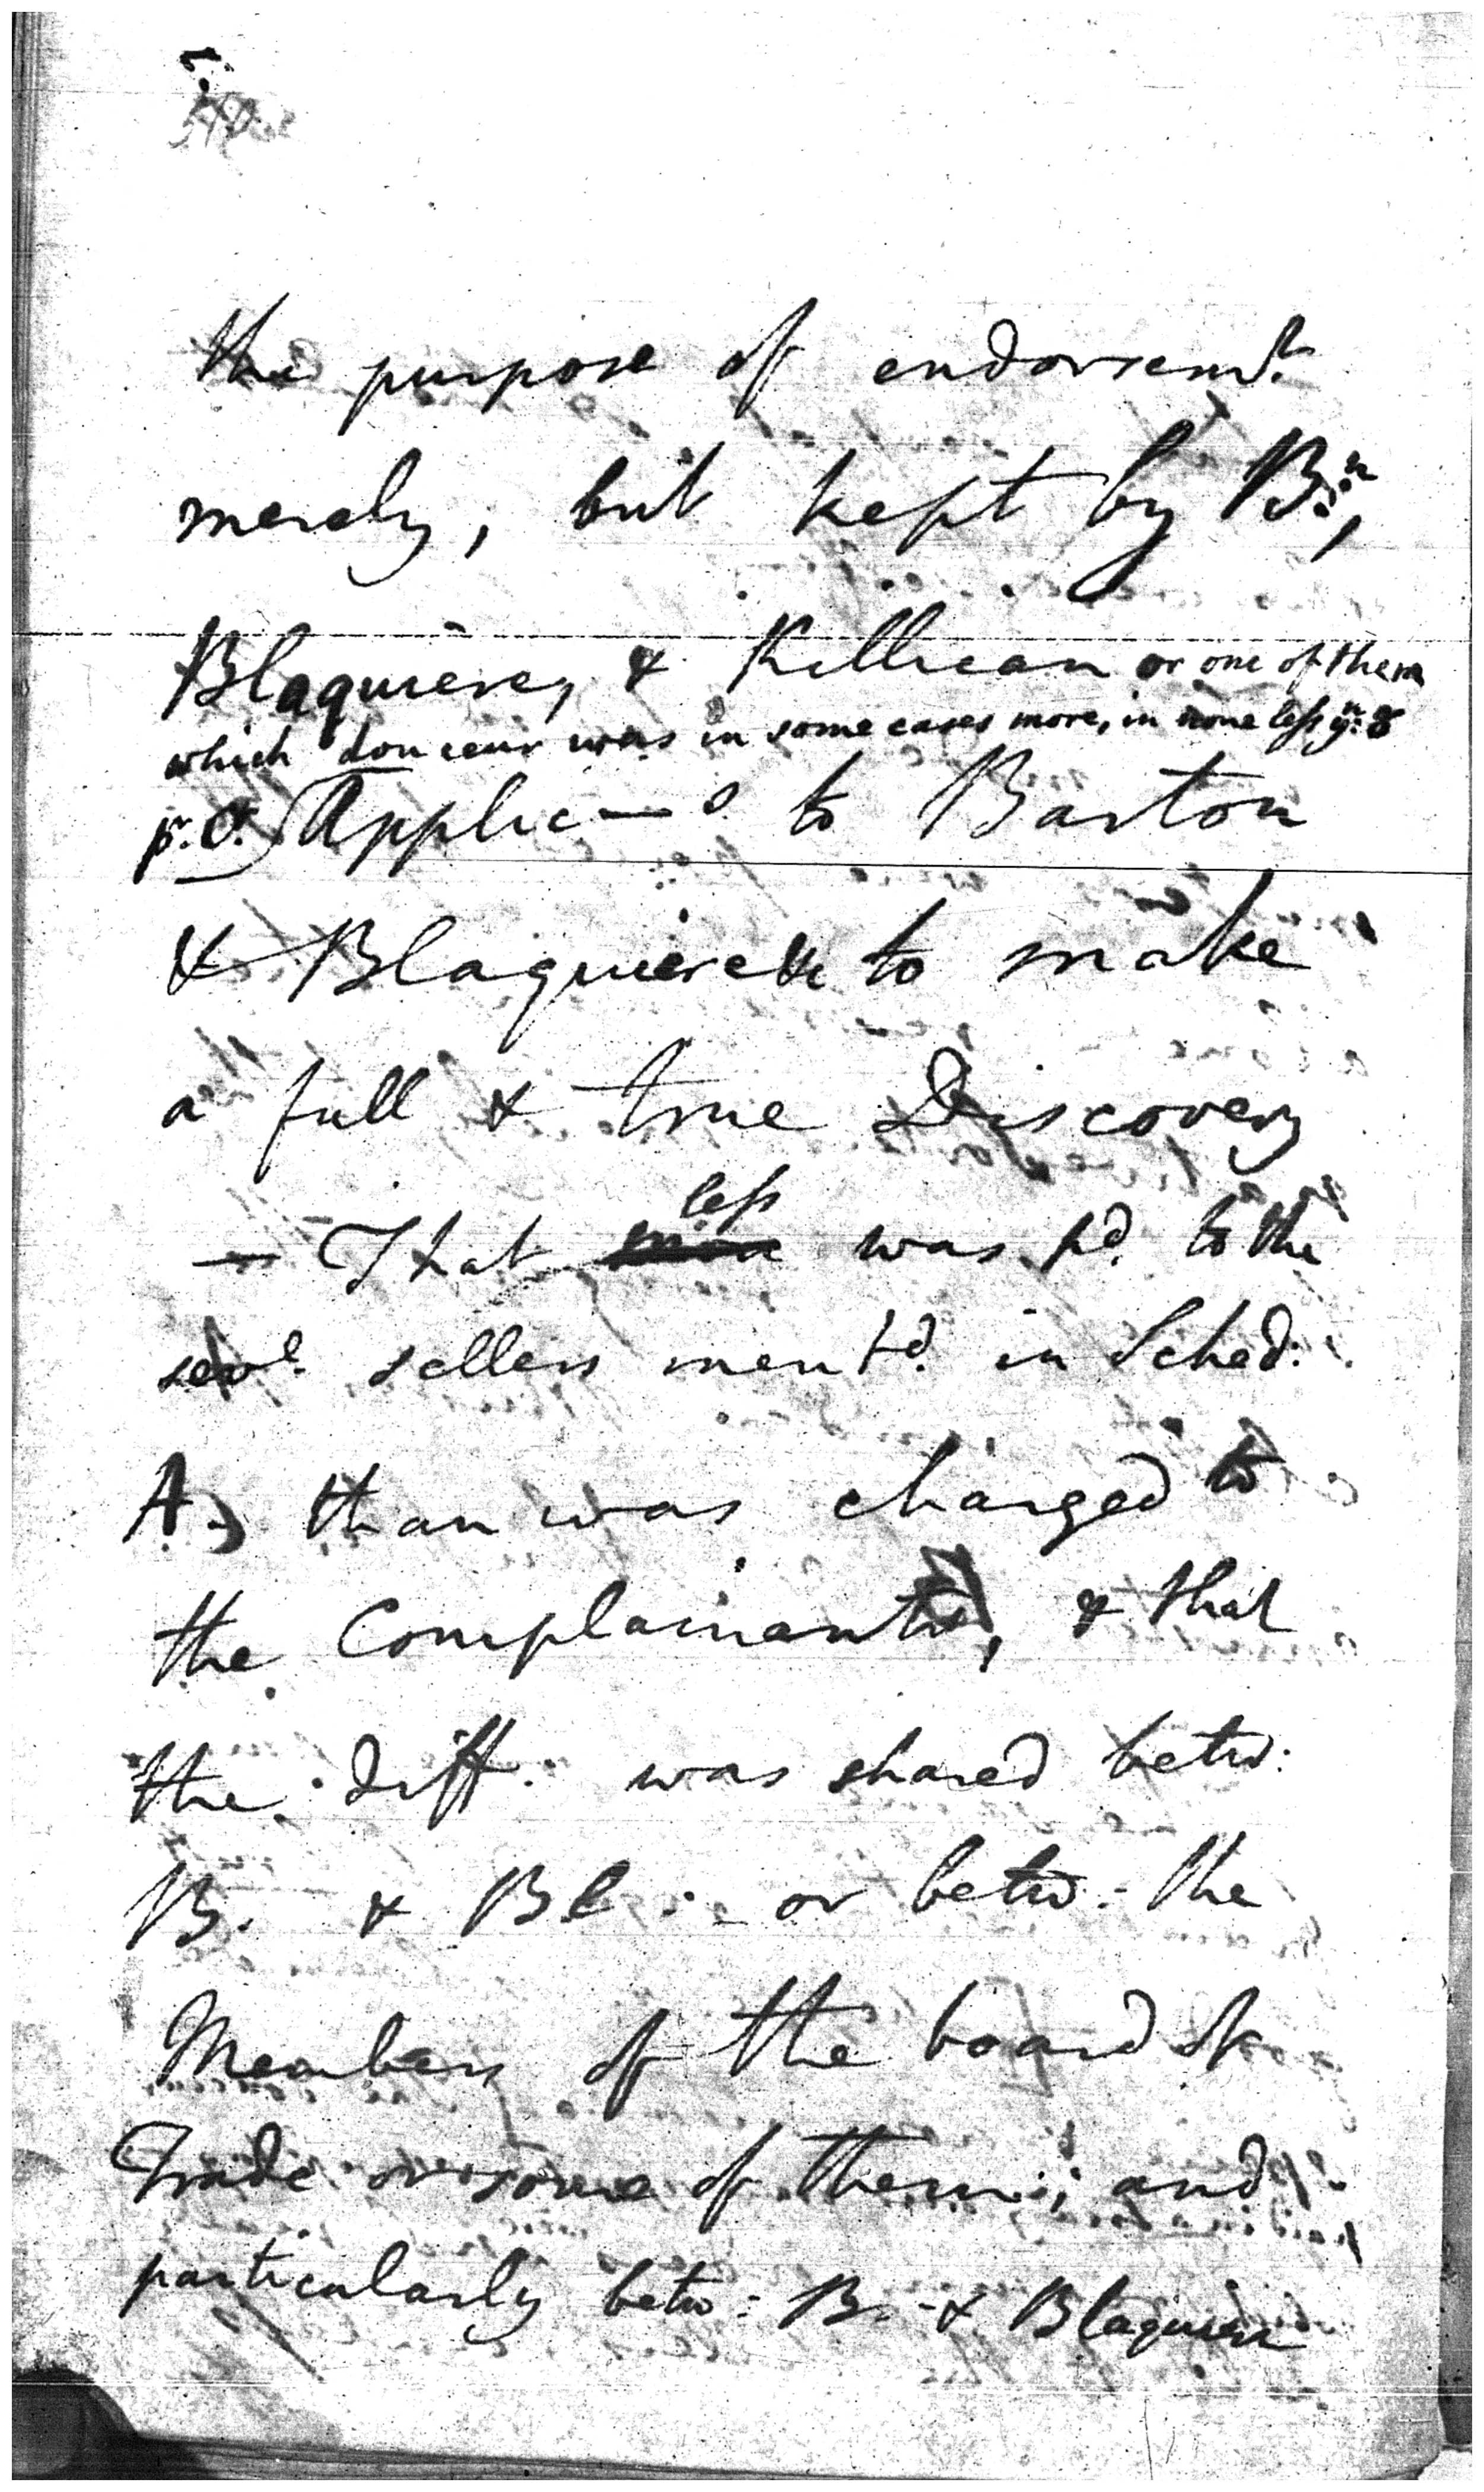 5.
the purpose of endorsemt.
merely, but kept by B:n,
Blaquiere, & Killican or one of them
which douceur was in some cases more, in none less yn: 8
pr. Ct. Applic—s to Barton
& Blaquiere &c to make
a full & true Discovery
— That less was pd. to the
sevl. sellers mentd. in Sched:
A, than was charged to
the Complainants, & that
the diff. was shared betw:
B. & Bl: or betw: the
Members of the board of
Trade or some of them; and
particularly betw: B. & Blaquiere